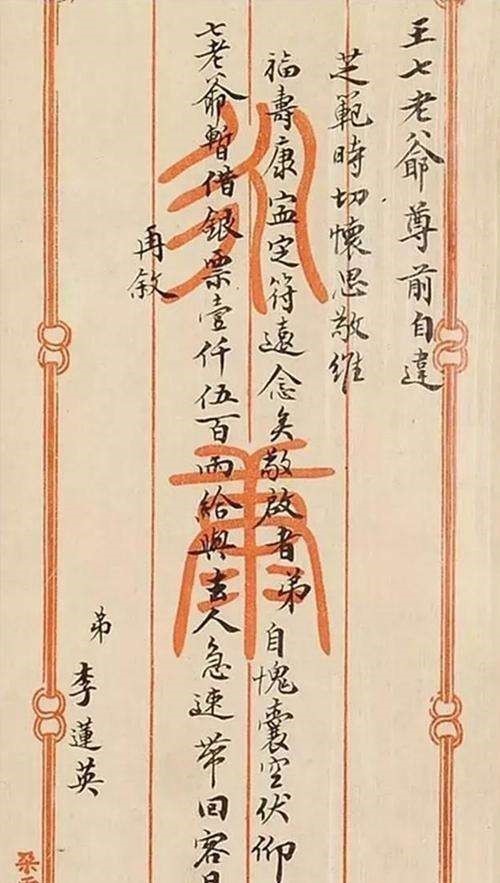 王七老爺尊前自違
芝範時切懷思敬維
福壽康寍定符遠念矣敬啟者弟自愧囊空伏仰
七老爺暫借銀票壹仟伍百兩給與去人急速帶回容日
再敘
弟 李蓮英